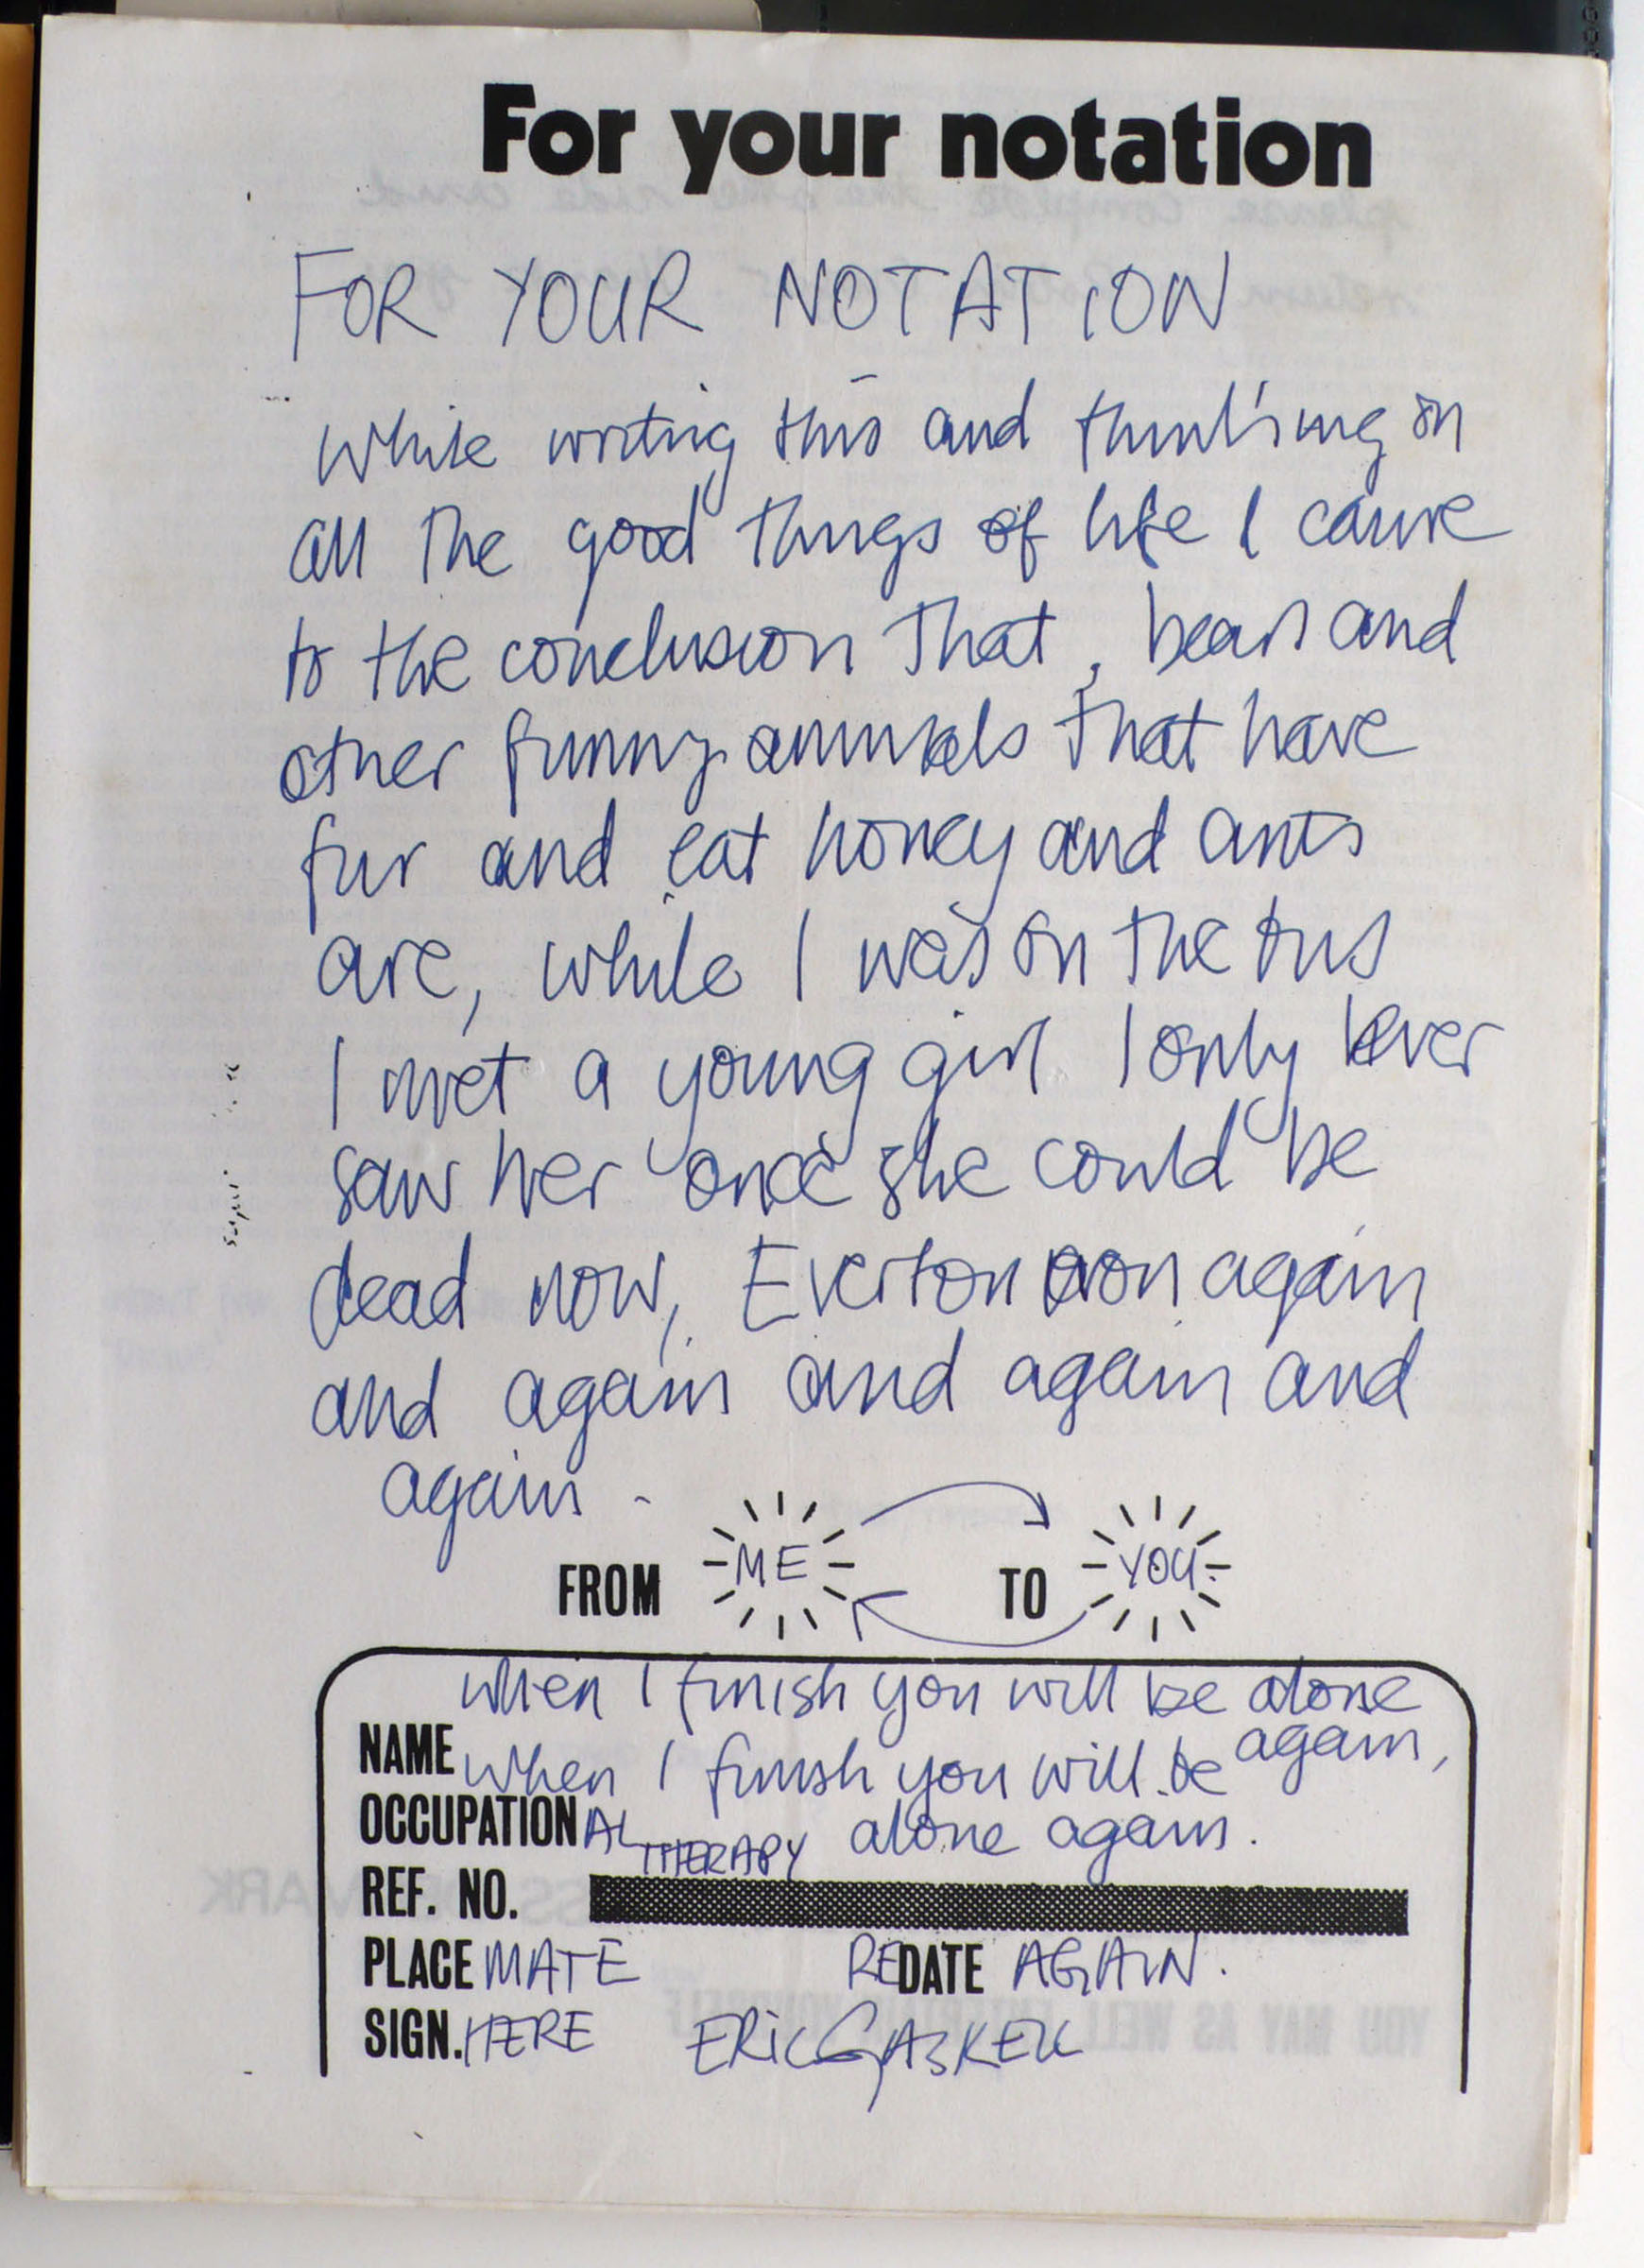 For your notation
FOR YOUR NOTATION
While writing this and thinking on
all the good things of life I came
to the conclusion that, bears and
other funny animals that have
fur and eat honey and ants
are, while I was on the bus
I met a young girl I only ever
saw her once she could be
dead now, Everton won again
and again and again and
again -
FROM ME TO YOU.
when I finish you will be alone
again,
NAME when I finish you will be
OCCUPATIONAL THERAPY alone again.
REF. NO.
PLACE MATE REDATE AGAIN.
SIGN. HERE ERIC GASKELL